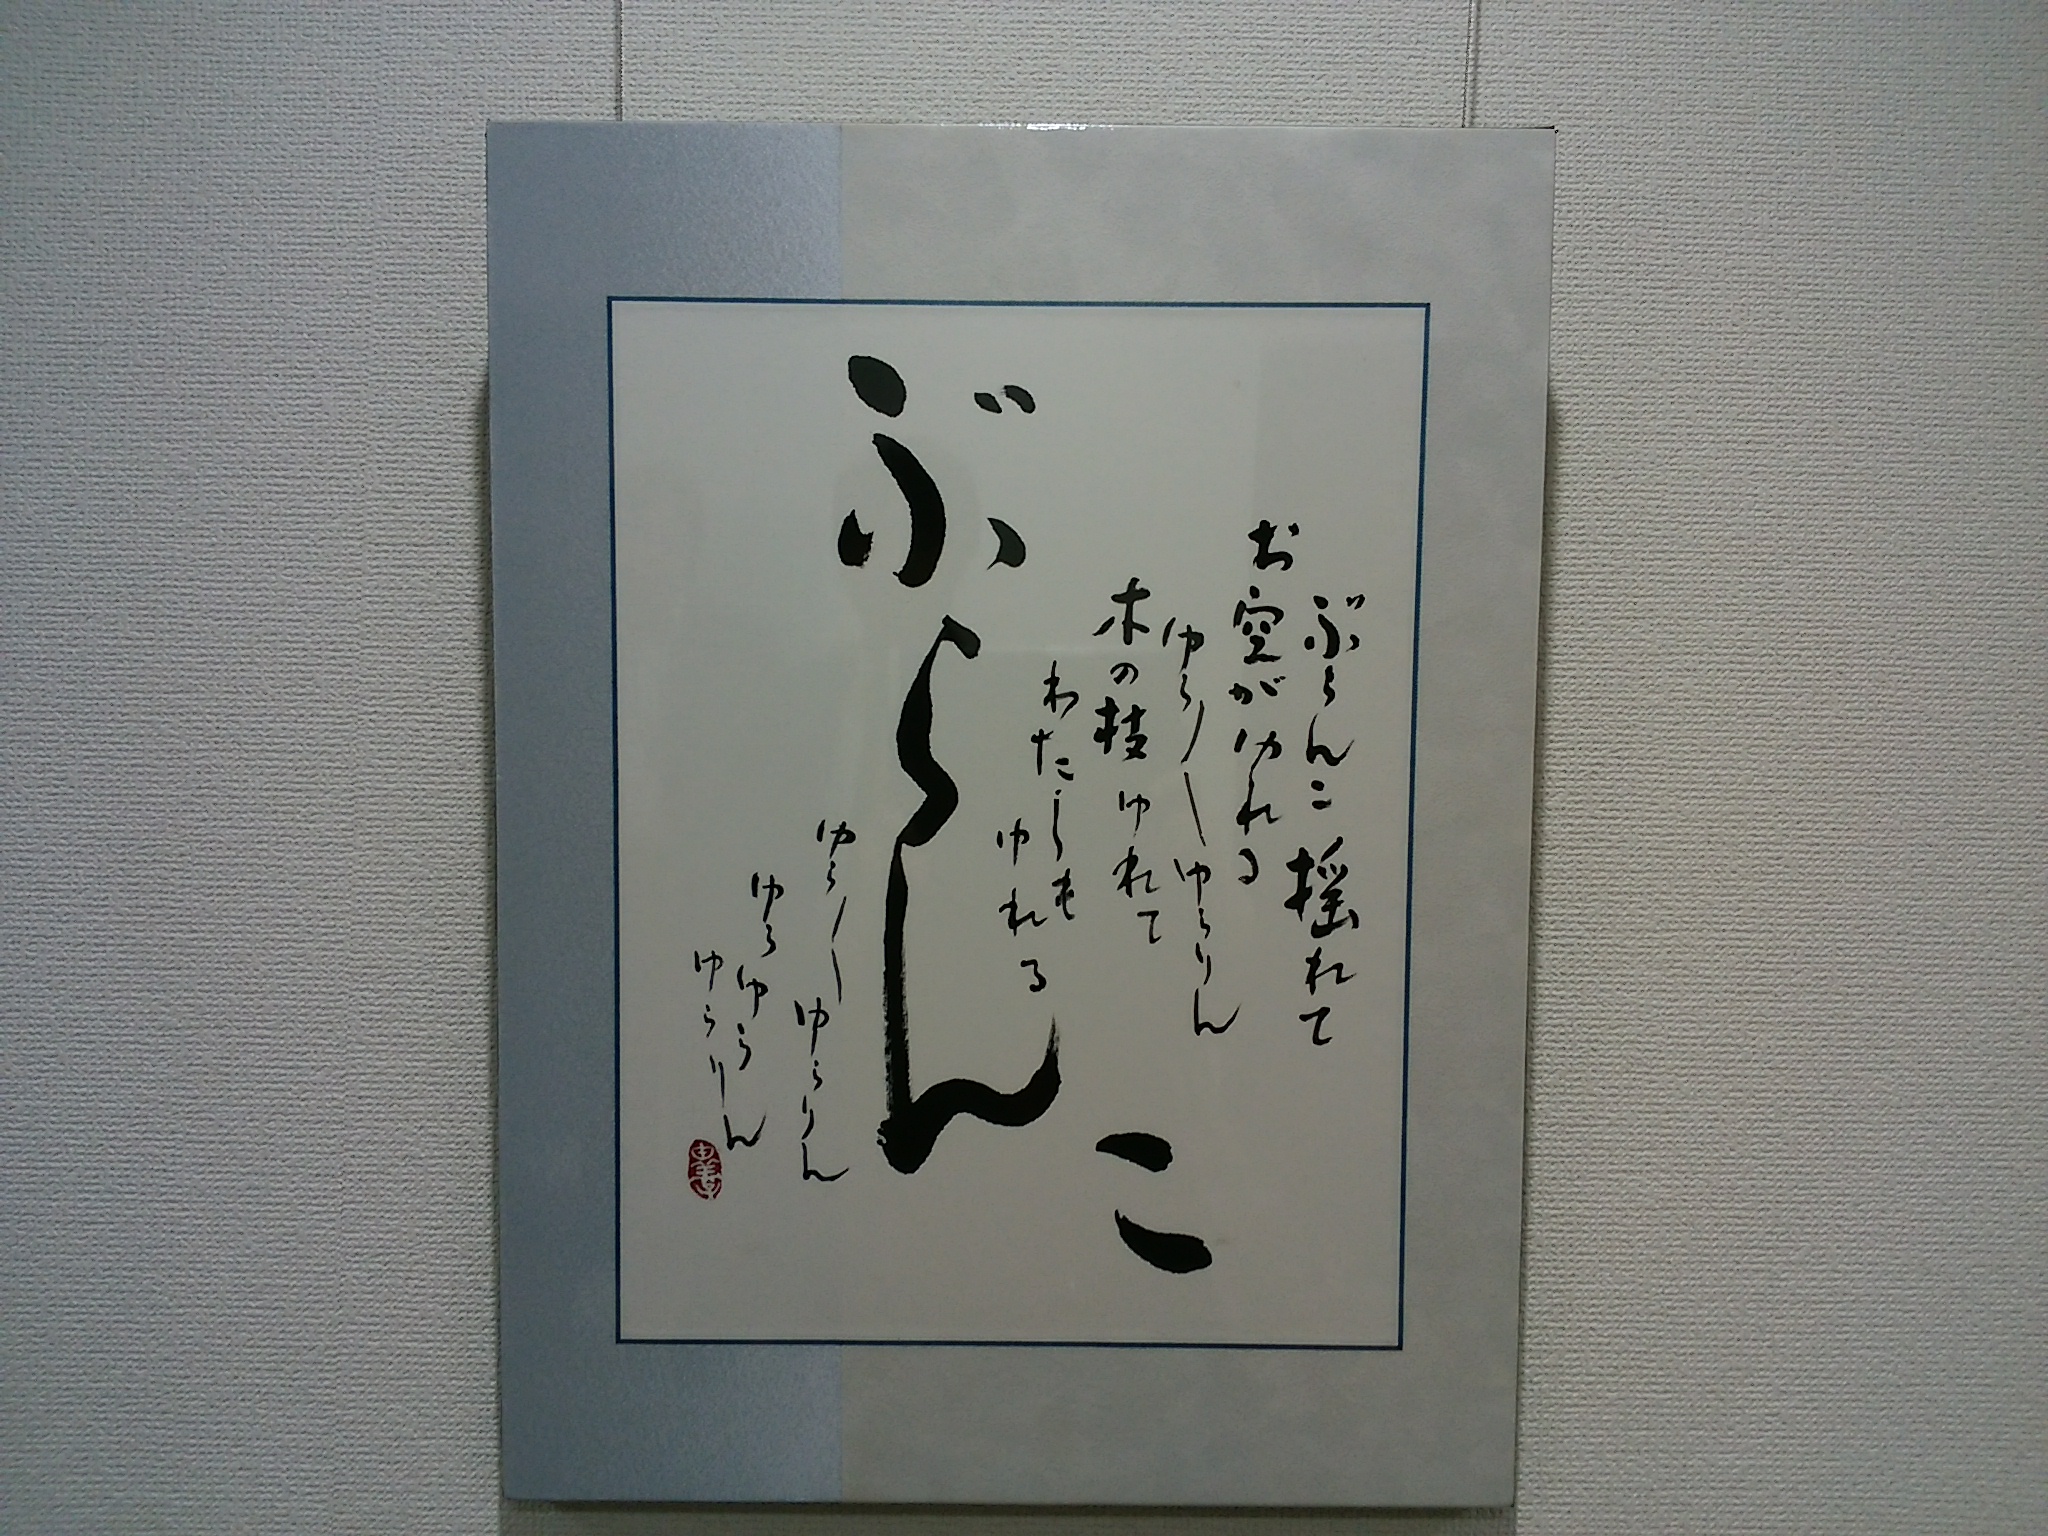 ぶらんこ揺れて
お空がゆれる
ゆら〳〵ゆらりん
木の枝ゆれて
わたしも
ゆれる
ぶらんこ
ゆら〳〵ゆらりん
ゆらゆら
ゆらりん